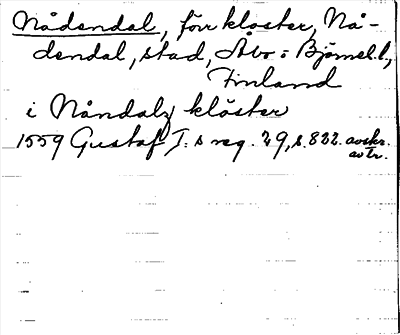 Nådendal, förr kloster, Nå-
dendal, stad, Åbo- Björneb. l.,
Finland
i Nåndalz klöster
1559 Gustaf I:s reg. 29, s. 822. avskr.
avtr.